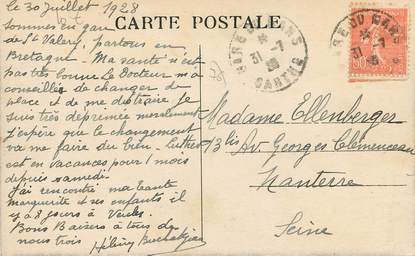 le 30 Juillet 1928
CARTE POSTALE
sommes en gare
de St Valery, partons en
Bretagne. Ma santé n'est
pas très bonne le Docteur m'a
conseillé de changer de
place et de me distraire je
suis très déprimée moralement
J'espère que le changement
va me faire du bien. Luther
est en vacances pour 1 mois
depuis samedi
J'ai rencontré ma tante
marguerite et ses enfants il
y a 8 jours à Veules.
Bons Baisers à tous de
nous trois
GARE DU MANS
31 -7
28
SARTHE
GARE DU MANS
31 -7
28
Madame Ellenberger
13 bis Av. Georges Clémenceau
Nanterre
Seine